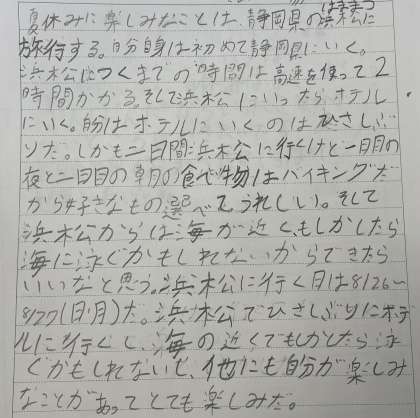 夏休みに楽しみなことは、静岡県の浜松に
はままつ
旅行する。自分自身は初めて静岡県にいく。
浜松につくまでの時間は高速を使って2
時間かかる。そして浜松にいったらホテル
にいく。自分はホテルにいくのはひさしぶ
りだ。しかも二日間浜松に行くけど一日目の
夜と二日目の朝の食べ物はバイキングだ
から好きなもの選べてうれしい。そして
浜松からは海が近くもしかしたら
海に泳ぐかもしれないからできたら
いいなと思う。浜松に行く日は8/26〜
8/27(日・月)だ。浜松でひさしぶりにホテ
ルに行くし、海の近くでもしかしたら泳
ぐかもしれないし、他にも自分が楽しみ
なことがあってとても楽しみだ。